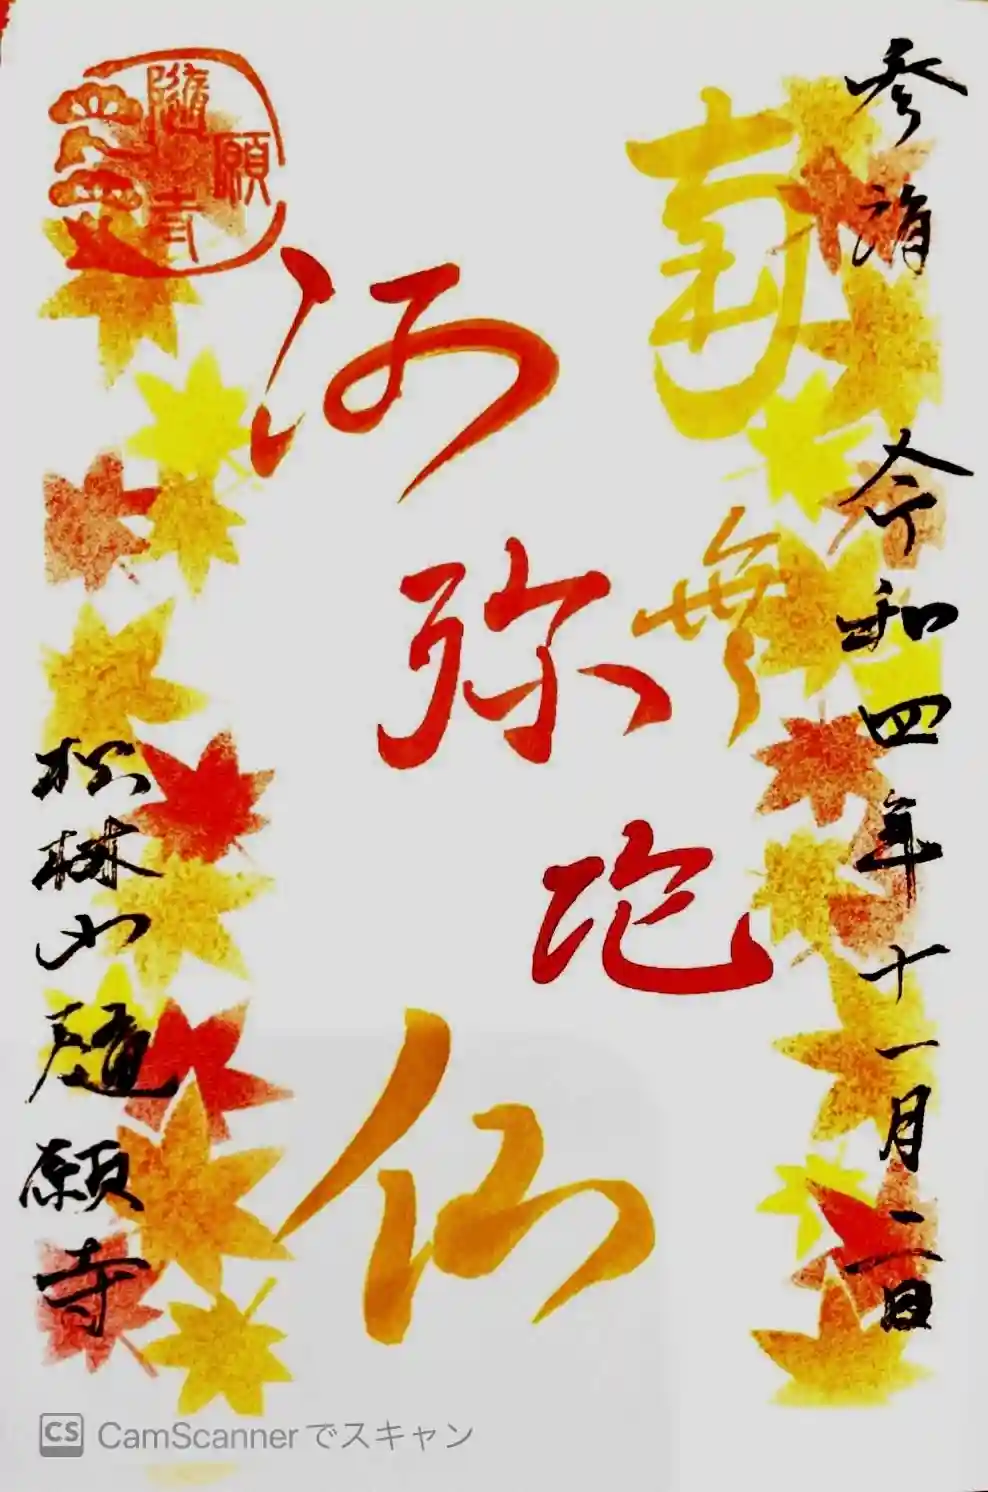 参詣 令和四年十一月二日
南無
阿弥陀仏
松林山 隨願寺
願
隨
寺
CS CamScannerでスキャン